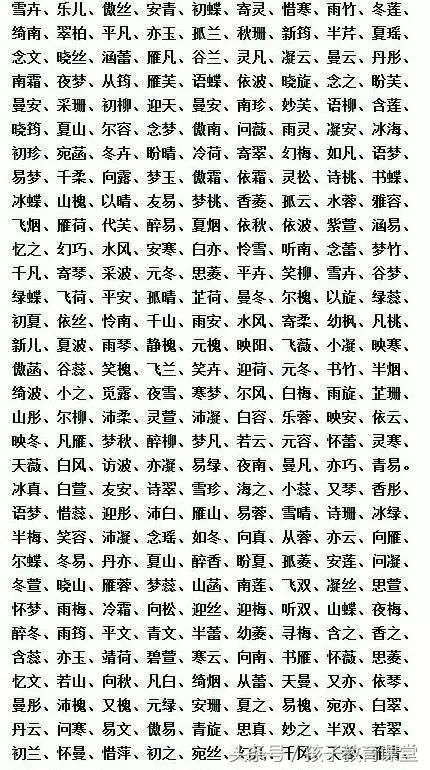 雪卉、乐儿、傲丝、安青、初蝶、寄灵、惜寒、雨竹、冬莲、
绮南、翠柏、平凡、亦玉、孤兰、秋珊、新筠、半芹、夏瑶、
念文、晓丝、涵蕾、雁凡、谷兰、灵凡、凝云、曼云、丹彤、
南霜、夜梦、从筠、雁芙、语蝶、依波、晓旋、念之、盼芙、
曼安、采珊、初柳、迎天、曼安、南珍、妙芙、语柳、含莲、
晓筠、夏山、尔容、念梦、傲南、问薇、雨灵、凝安、冰海、
初珍、宛菡、冬卉、盼晴、冷荷、寄翠、幻梅、如凡、语梦、
易梦、千柔、向露、梦玉、傲霜、依霜、灵松、诗桃、书蝶、
冰蝶、山槐、以晴、友易、梦桃、香菱、孤云、水蓉、雅容、
飞烟、雁荷、代芙、醉易、夏烟、依秋、依波、紫萱、涵易、
忆之、幻巧、水风、安寒、白亦、怜雪、听南、念蕾、梦竹、
千凡、寄琴、采波、元冬、思菱、平卉、笑柳、雪卉、谷梦、
绿蝶、飞荷、平安、孤晴、芷荷、曼冬、尔槐、以旋、绿蕊、
初夏、依丝、怜南、千山、雨安、水风、寄柔、幼枫、凡桃、
新儿、夏波、雨琴、静槐、元槐、映阳、飞薇、小凝、映寒、
傲菡、谷蕊、笑槐、飞兰、笑卉、迎荷、元冬、书竹、半烟、
绮波、小之、觅露、夜雪、寒梦、尔风、白梅、雨旋、芷珊、
山彤、尔柳、沛柔、灵萱、沛凝、白容、乐蓉、映安、依云、
映冬、凡雁、梦秋、醉柳、梦凡、若云、元容、怀蕾、灵寒、
天薇、白风、访波、亦凝、易绿、夜南、曼凡、亦巧、青易。
冰真、白萱、友安、诗翠、雪珍、海之、小蕊、又琴、香彤、
语梦、惜蕊、迎彤、沛白、雁山、易蓉、雪晴、诗珊、冰绿、
半梅、笑容、沛凝、念瑶、如冬、向真、从蓉、亦云、向雁、
尔蝶、冬易、丹亦、夏山、醉香、盼夏、孤菱、安莲、问凝、
冬萱、晓山、雁蓉、梦蕊、山菡、南莲、飞双、凝丝、思萱、
怀梦、雨梅、冷霜、向松、迎丝、迎梅、听双、山蝶、夜梅、
醉冬、雨筠、平文、青文、半蕾、幼菱、寻梅、含之、香之、
含蕊、亦玉、靖荷、碧萱、寒云、向南、书雁、怀薇、思菱、
忆文、若山、向秋、凡白、绮烟、从蕾、天曼、又亦、依琴、
曼彤、沛槐、又槐、元绿、安珊、夏之、易槐、宛亦、白翠、
丹云、问寒、易文、傲易、青旋、思真、妙之、半双、若翠、
初兰、怀曼、惜萍、初之、宛丝、
头条号/孩子教育课堂